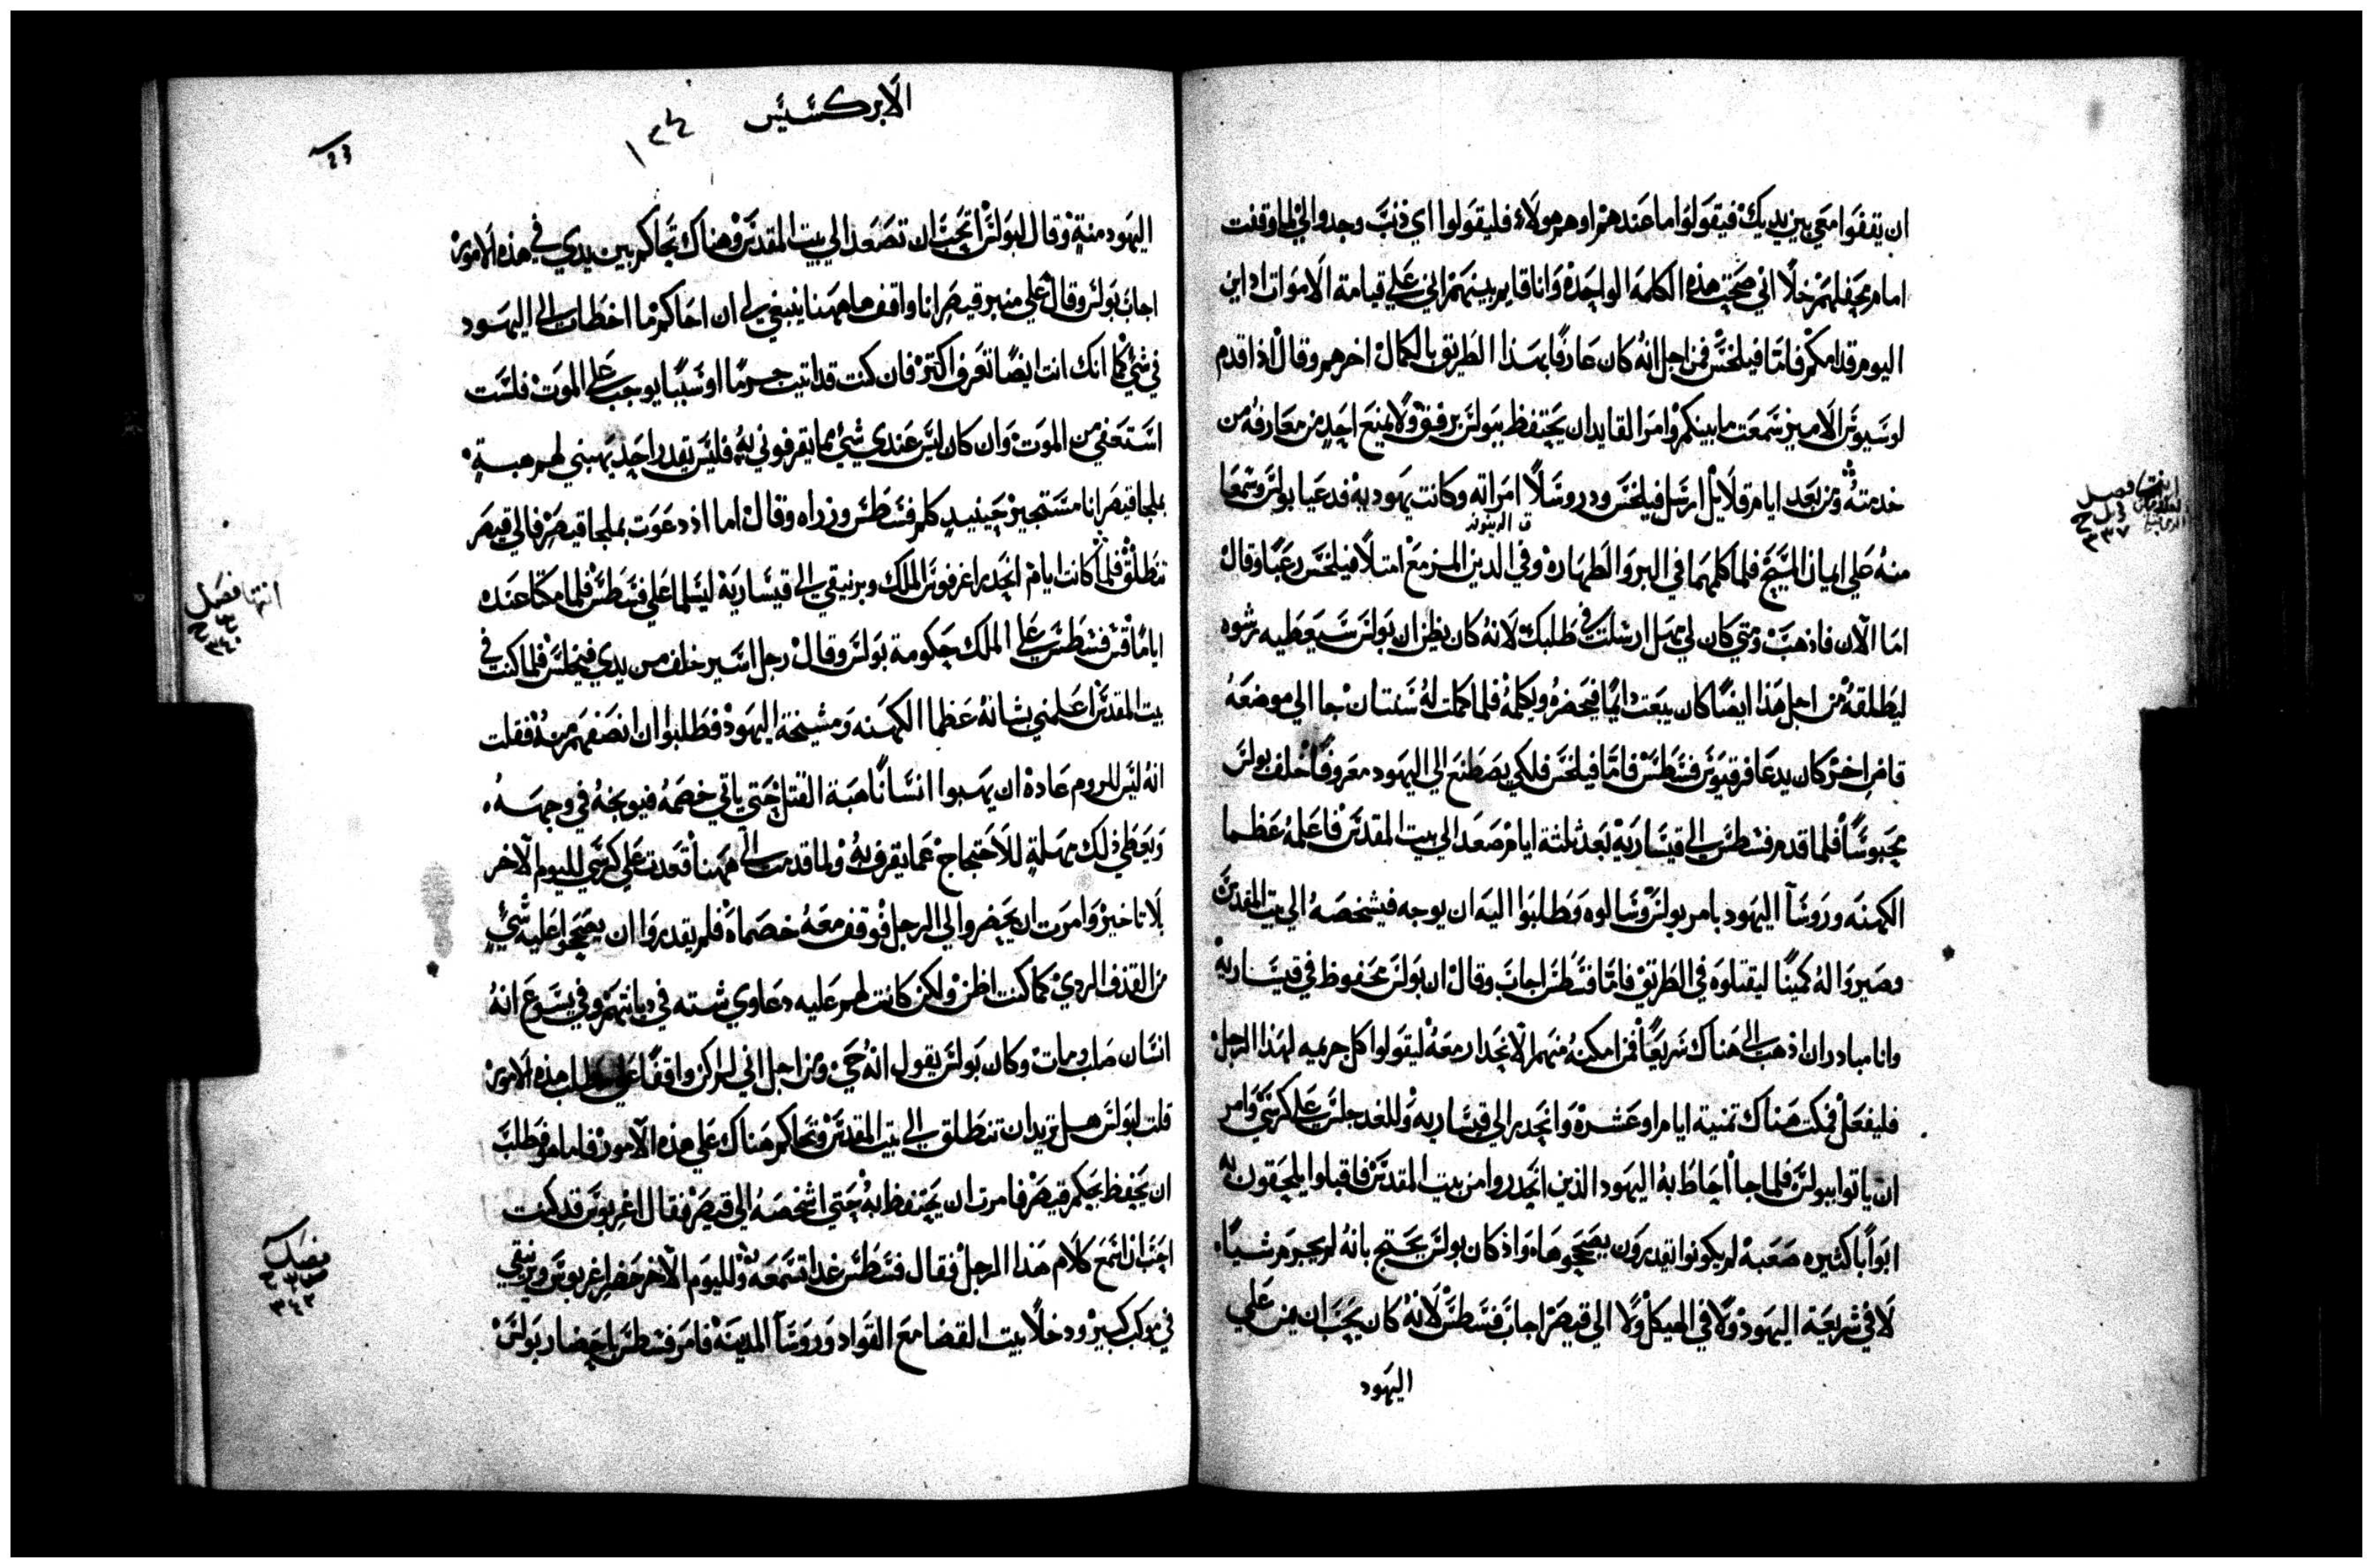 ان يقفوا معي بين يديك فيقولوا ما عندهم او هم هولاء فليقولوا اي ذنب وجدوا لي لما وقفت
امام محفلهم خلا اني صحت هذه الكلمه الواحدة وانا قايم بينهم اني علي قيامة الاموات ادان
اليوم قدامكم فاما فيلخس فمن اجل انه كان عارفا بهذا الطريق بالكمال اخرهم وقال اذا اقدم
لوسيوس الامير سمعت ما بينكم وامر القايد ان يحتفظ ببولس برفق ولا يمنع احد من معارفه من
خدمته ومن بعد ايام قلايل ارسل فيلخس ودروسلا امراته وكانت يهودية فدعيا بولس وسمعا
منه علي ايمان المسيح فلما كلمهما في البر والطهارة وفي الدين المزمع امتلا فيلخس رعبا وقال
اما الآن فاذهب ومتي كان لي مهل ارسلت في طلبك لانه كان يظن ان بولس سيعطيه رشوه
ليطلقه من اجل هذا ايضا كان يبعث دايما فيحضره ويكلمه فلما كملت له سنتان جا الي موضعه
قاض اخر كان يدعا فرقيوس فسطس فاما فيلخس فلكي يصطنع الي اليهود معروفا خلف بولس
محبوسا فلما قدم فسطس الي قيسارية بعد ثلثة ايام صعد الي بيت المقدس فاعلمه عظما
الكهنه وروسآ اليهود بامر بولس وسالوه وطلبوا اليه ان يوجه فيشخصه الي بيت المقدس
وصيروا له كمينا ليقتلوه في الطريق فاما فسطس اجاب وقال ان بولس محفوظ في قيساريه
وانا مبادر ان اذهب الي هناك سريعا فمن امكنه منهم الانحدار معه ليقولوا كل جريمه لهذا الرجل
فليفعل فمكث هناك تمنية ايام او عشرة وانحدر الي قيساريه وللغد جلس علي كرسي وامر
ان ياتوا ببولس فلما جا احاط به اليهود الذين انحدروا من بيت المقدس فاقبلوا يلحقون به
ابوابا كثيره صعبة لم يكونوا يقدرون يصححوها واذ كان بولس يحتج بانه لم يجرم شيا
لا في شريعة اليهود ولا في الهيكل ولا الي قيصر اجاب فسطس لانه كان يحب ان يمن علي
اليهود
انتها فصل
٣٣٧
الابركسيس
اليهود منة وقال لبولس اتحب ان تصعد الي بيت المقدس وهناك تحاكم بين يدي في هذه الامور
اجاب بولس وقال علي منبر قيصر انا واقف هاهنا ينبغي لي ان احاكم ما اخطات الي اليهود
في شي كما انك انت ايضا تعرف اكتر فان كنت قد اتيت جرما او سببا يوجب علي الموت فلست
استعفي من الموت وان كان ليس عندي شي مما يقرفوني به فليس يقدر احد يهبني لهم هبة
بملجا قيصر انا مستجير حينيد كلم فسطس وزراه وقال اما اذ دعوت بملجا قيصر فالي قيصر
تنطلق فلما كانت ايام انحدر اغرفوس الملك وبرنيقي الي قيسارية ليسلما علي فسطس فلما مكثا عنده
اياما قص فسطس علي الملك حكومة بولس وقال رجل اسير خلف من يدي فيلخس فلما كنت في
بيت المقدس اعلمني بشانه عظما الكهنه ومشيخة اليهود فطلبوا ان انصفهم منه فقلت
انه ليس للروم عادة ان يهبوا انسانا هبة القتل حتي ياتي خصمه فيوبخه في وجهه
ويعطي ذلك مهلة للاحتجاج عما يقرف به ولما قدمت الي ههنا قعدت علي كرسي لليوم الآخر
بلا تاخير وامرت ان يحضروا لي الرجل فوقف معه خصماه فلم يقدروا ان يصححوا عليه شي
من القذف الردي كما كنت اظن ولكن كانت لهم عليه دعاوي شته في ديانتهم وفي يسوع انه
انسان صلب ومات وكان بولس يقول انه حي ومن اجل اني لم اكن واقفا علي طلب هذه الامور
قلت لبولس هل تريد ان تنطلق الي بيت المقدس وتحاكم هناك علي هذه الامور فاما هو فطلب
ان يحفظ بحكم قيصر فامرت ان يحتفظ به حتي اشخصه الي قيصر فقال اغربوس قد كنت
احب ان اسمع كلام هذا الرجل فقال فسطس غدا تسمعه ولليوم الآخر حضر اغربوس وبرنيقي
في موكب كبير ودخلا بيت القضا مع القواد وروسآ المدينة فامر فسطس باحضار بولس
انتها فصل
٣٤٠
فصل
٣٤٢